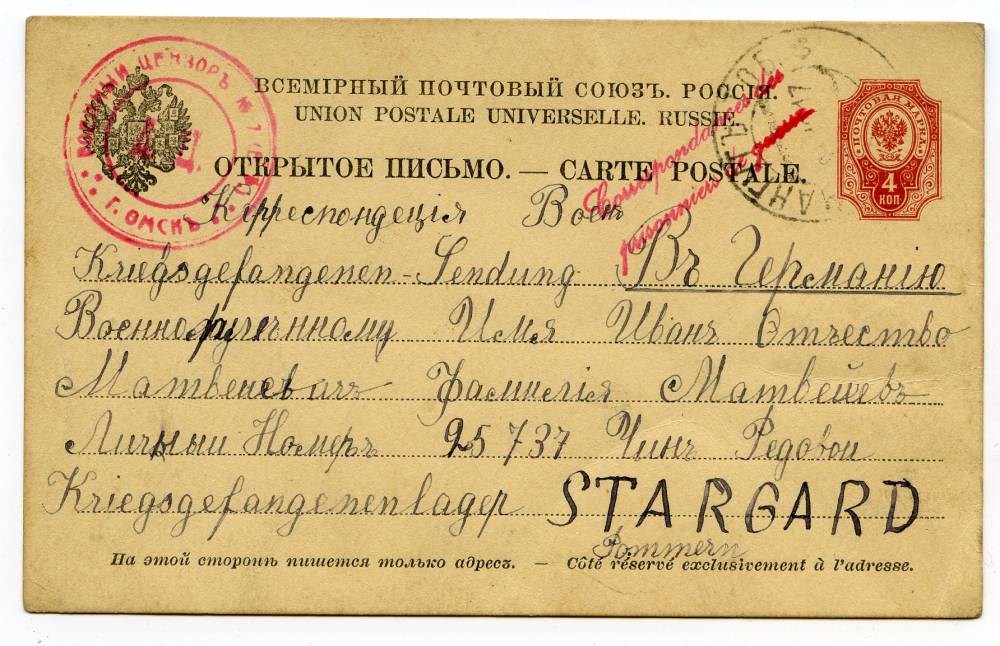 ВОЕННЫЙ ЦЕНЗОРЪ №
Г. ОМСКЪ
ВСЕМІРНЫЙ ПОЧТОВЫЙ СОЮЗЪ. РОССІЯ.
UNION POSTALE UNIVERSELLE. RUSSIE.
ОТКРЫТОЕ ПИСЬМО. — CARTE POSTALE.
Correspondance des
prisonniers de guerre
ПОЧТОВАЯ МАРКА
4
КОП
Керреспондеція Воен
Kriegsgefangenen-Sendung Въ Германію
Военнопленному Имя Иванъ Отчество
Матвеневачъ Фамилія Матвеевъ
Личный Номеръ 25737 Чинъ Редовои
Kriegsgefangenenlager STARGARD
Pommern
На этой сторонѣ пишется только адресъ. — Côté réservé exclusivement à l'adresse.